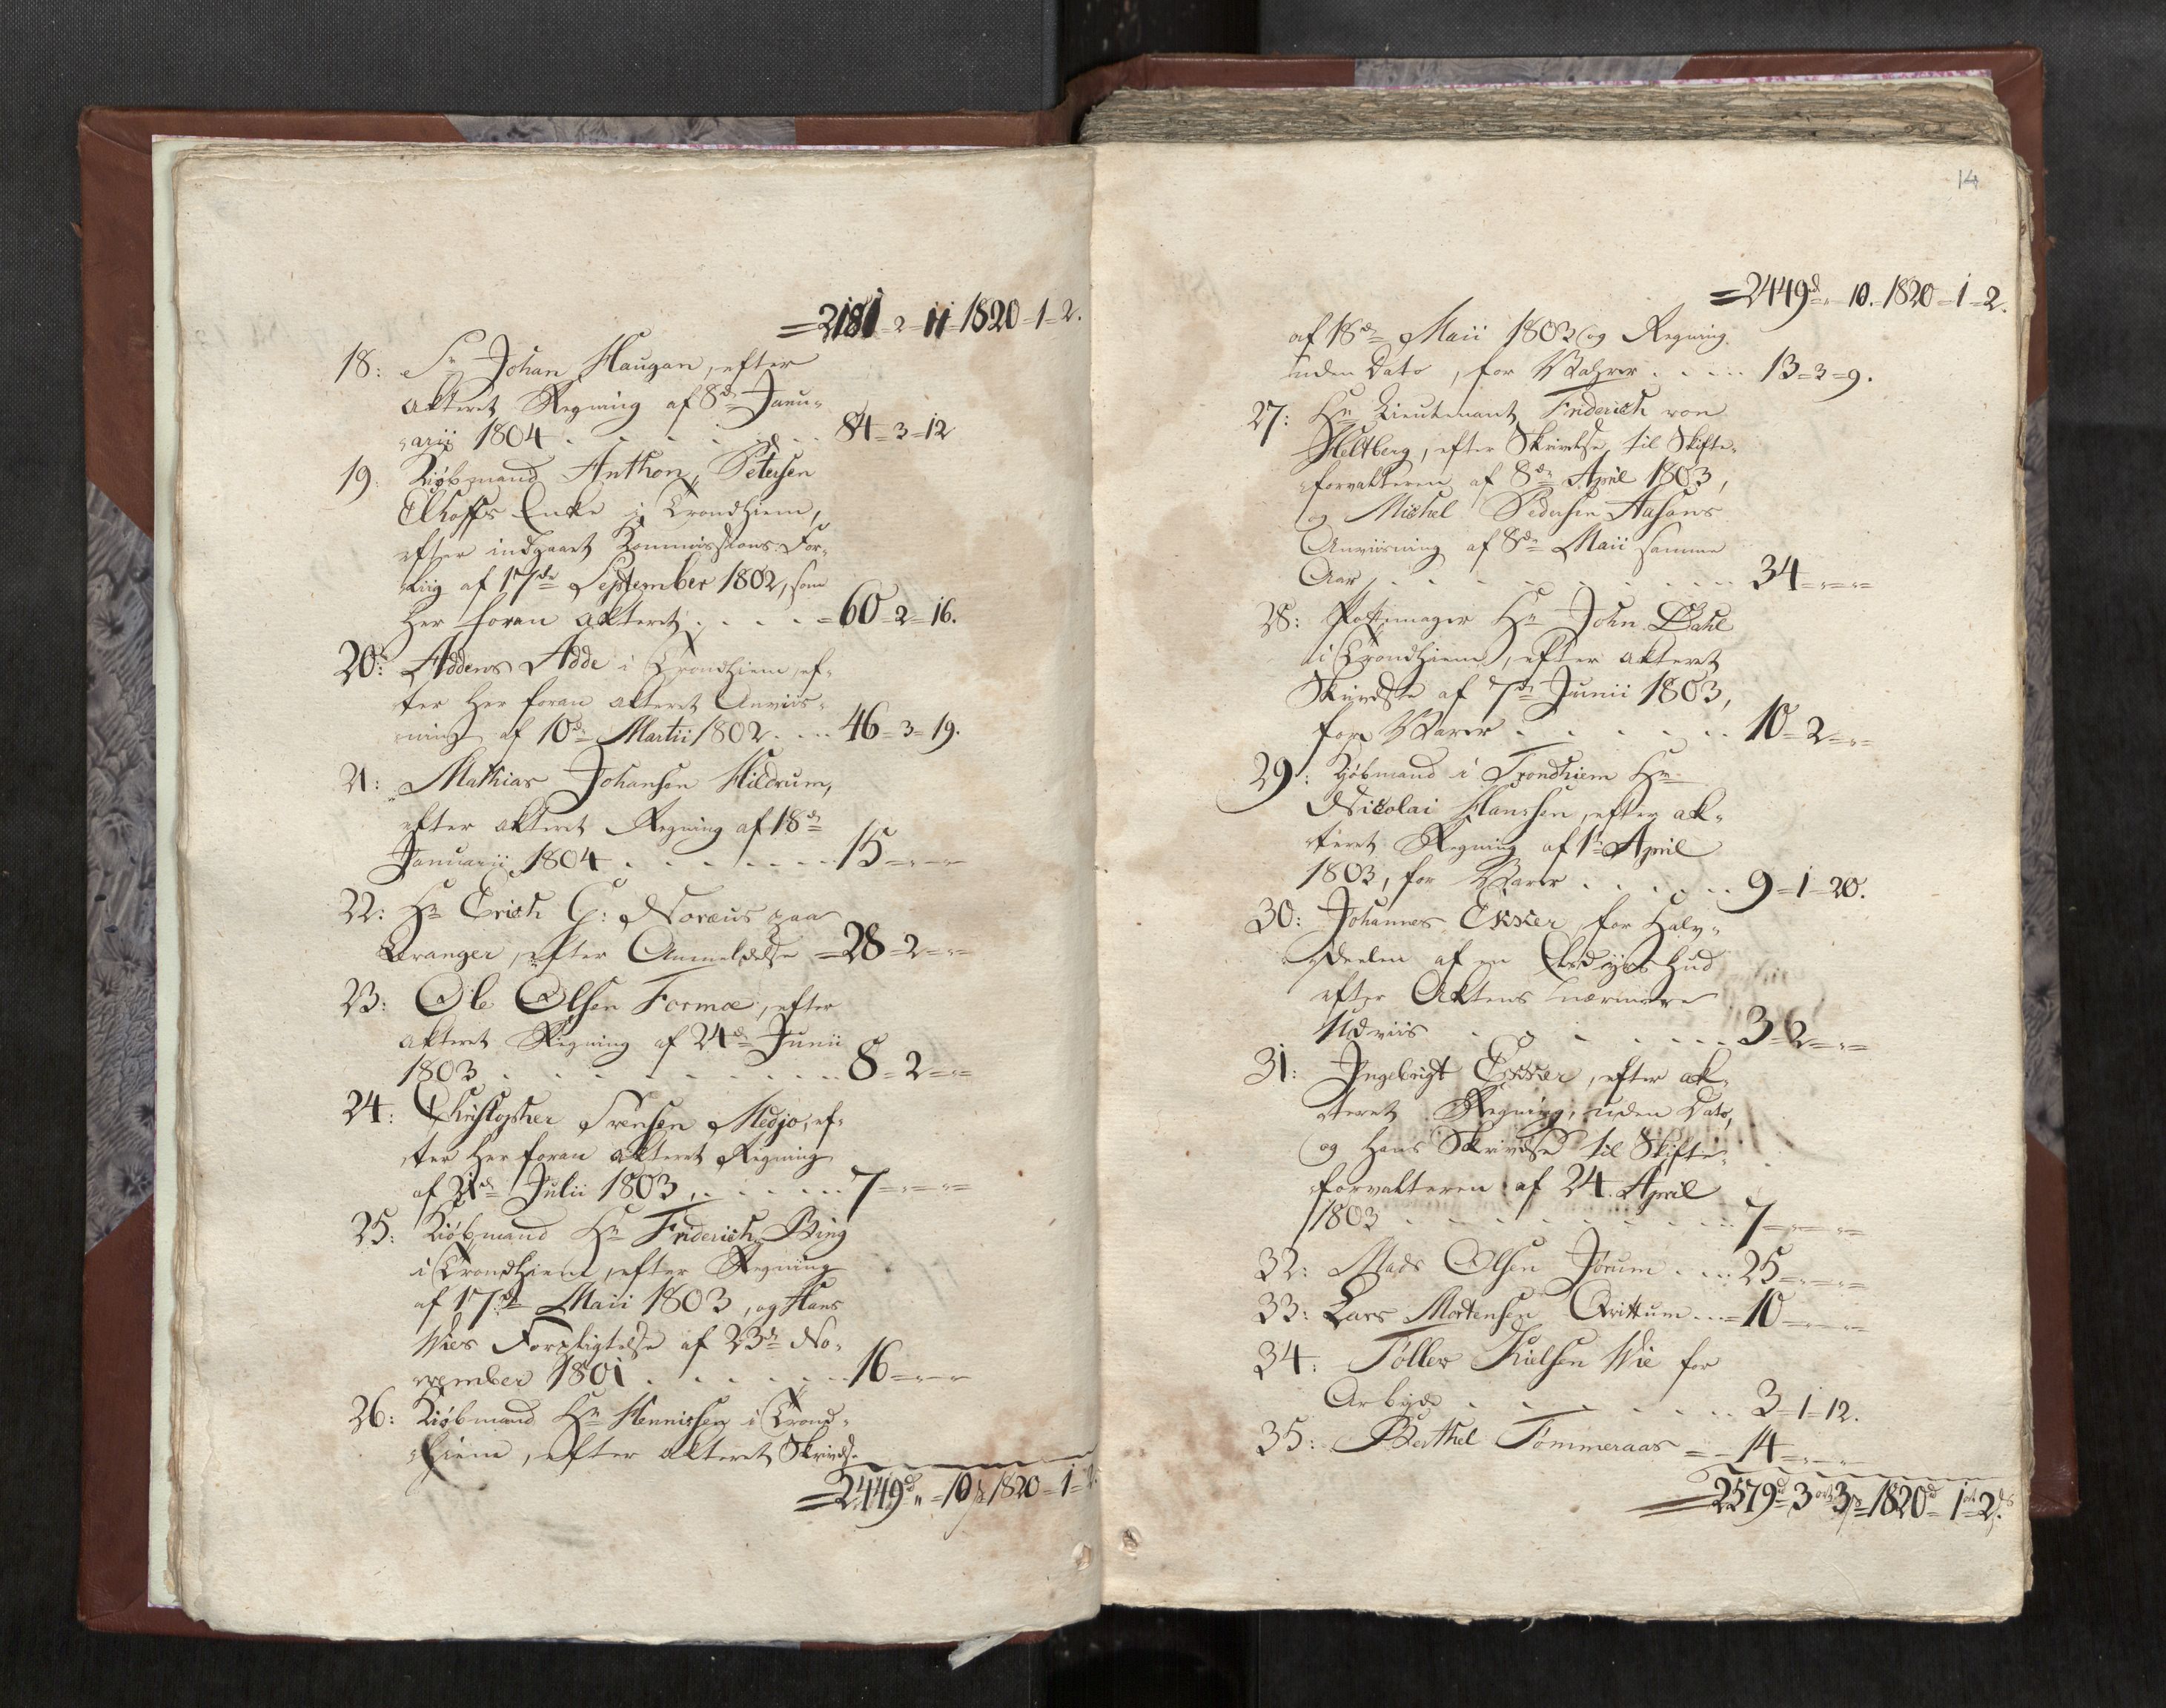 =2181=2=11=1820=1=2.
18: Sr Johan Haugan, efter
akteret Regning af 8de Janu-
arii 1804 . . . . . . 84=3=12
19. Kiøbmand Anthon Petersen
Elhoffs Enke i Trondhiem,
efter indgaaet Kommissions For-
liig af 17de September 1802, som
her foran akteret . . . . =60=2=16.
20: Addens Adde i Trondhiem, ef-
ter her foran akteret Anviis-
ning af 10de Martii 1802 . . . 46=3=19.
21: Mathias Johansen Hildrum,
efter akteret Regning af 18de
Januarii 1804 . . . . . . 15=„=„
22: Hr Erich G: Noræus paa
Qranger, efter Anmeldelse =28=2=„
23: Ole Olsen Formoe, efter
akteret Regning af 24de Junii
1803 . . . . . . . . . 8=2=„
24: Christopher Svensen Medjo, ef-
ter her foran akteret Regning
af 21de Julii 1803 . . . . . 7=„=„
25: Kiøbmand Hr Friderich Bing
i Trondhiem, efter Regning
af 17de Maii 1803, og Hans
Wies Forpligtelse af 23de No-
vember 1801 . . . . . . 16=„=„
26: Kiøbmand Hr Hennissen i Trond-
hiem, efter akteret Skrivelse
=2449d „=10 ß 1820=1=2.
14
=2449d „=10.=1820=1=2.
af 18de Maii 1803 og Regning
uden Dato, for Wahrer . . . . 13=3=9.
27: Hr Lieutenant Friderich von
Heltberg, efter Skrivelse til Skifte-
forvalteren af 8de April 1803,
og Michel Pedersen Aasans
Anviisning af 8de Maii samme
Aar . . . . . . . . . 34=„=„
28: Pottemager Hr John Dahl
i Trondhiem, efter akteret
Skrivelse af 7de Junii 1803,
for Warer . . . . . . 10=2=„
29: Kjøbmand i Trondhiem Hr
Nicolai Hanssen, efter ak-
teret Regning af 1te April
1803, for Warer . . . . . 9=1=20.
30: Johannes Ekker, for Halv-
deelen af en Elsdyrs Hud
efter Aktens nærmere
Udviis . . . . . . . 3=2=„
31: Ingebrigt Ekker, efter ak-
teret Regning, uden Dato,
og Hans Skrivelse til Skifte-
forvalteren af 24. April
1803 . . . . . . . . . 7=„=„
32: Mads Olsen Jørum . . . 25=„=„
33: Lars Mortensen Qvittum . . . =10=„=„
34: Töller Kielsen Wie for
Arbeyde . . . . . . . 3=1=12.
35: Berthel Tömmeraas = = 14=„=„
=2579d 3ort 3ß=1820d 1ort 2ß.